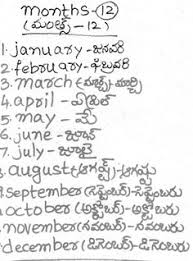 months-12
(మంత్స్-12)
1. january - జనవరి
2. february - ఫిబ్రవరి
3. march (మార్చ్)-మార్చి
4. april - ఏప్రిల్
5. may - మే
6. june - జూన్
7. july - జూలై
8. august (ఆగస్ట్)-ఆగస్టు
9. september (సెప్టెంబర్)-సెప్టెంబరు
october (అక్టోబర్)-అక్టోబరు
november (నవంబర్)-నవంబరు
december (డిసెంబర్)-డిసెంబరు